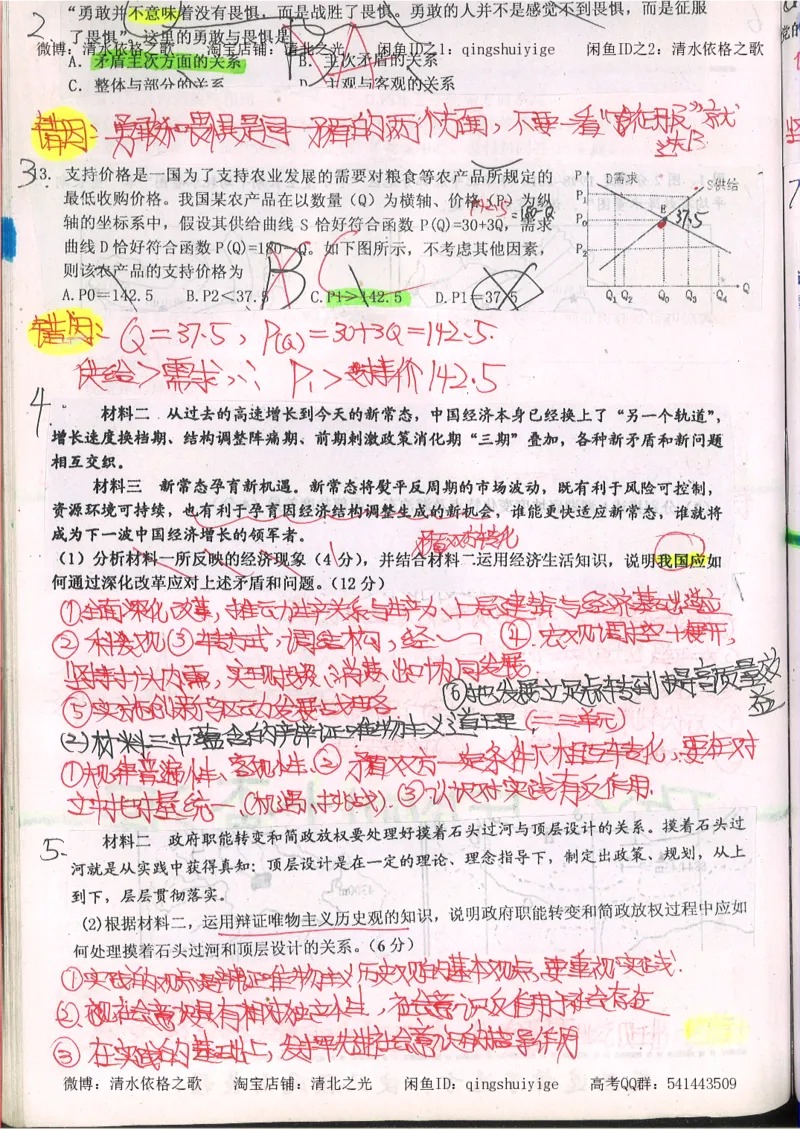 2
“勇敢并不意味着没有畏惧，而是战胜了畏惧。勇敢的人并不是感觉不到畏惧，而是征服
了畏惧”，这里的勇敢与畏惧是
微博：清水依格之歌 淘宝店铺：清北之光 闲鱼ID之1：qingshuiyige 闲鱼ID之2：清水依格之歌
A. 矛盾主次方面的关系 B. 主次矛盾的关系
C. 整体与部分的关系 D. 主观与客观的关系
错因：勇敢和畏惧是同一矛盾的两个方面，不要一看“征服”就
选B
3.
13. 支持价格是一国为了支持农业发展的需要对粮食等农产品所规定的
最低收购价格。我国某农产品在以数量（Q）为横轴、价格（P）为纵
轴的坐标系中，假设其供给曲线 S 恰好符合函数 P(Q)=30+3Q，需求
曲线 D 恰好符合函数 P(Q)=180-Q。如下图所示，不考虑其他因素，
则该农产品的支持价格为
142.5=180-Q
A.P0=142.5 B.P2<37.5 C.P1>142.5 D.P1=37.5
P D需求 S供给
P1
P0 E 37.5
P2
Q1 Q2 Q0 Q3 Q4 Q
错因：Q=37.5，P(Q)=30+3Q=142.5.
供给>需求，∴ P1>支持价142.5
4.
材料二 从过去的高速增长到今天的新常态，中国经济本身已经换上了“另一个轨道”，
增长速度换档期、结构调整阵痛期、前期刺激政策消化期“三期”叠加，各种新矛盾和新问题
相互交织。
材料三 新常态孕育新机遇。新常态将熨平反周期的市场波动，既有利于风险可控制，
资源环境可持续，也有利于孕育因经济结构调整生成的新机会，谁能更快适应新常态，谁就将
成为下一波中国经济增长的领军者。
矛盾双方转化
（1）分析材料一所反映的经济现象（4 分），并结合材料二运用经济生活知识，说明我国应如
何通过深化改革应对上述矛盾和问题。（12 分）
①全面深化改革，推动生产关系与生产力、上层建筑与经济基础适应
②科发观③转方式，调结构，经 ④宏观调控+展开，
坚持扩大内需，实现投资、消费、出口协同发展
⑤实施创新驱动发展战略 ⑥把发展立足点转到提高质量效
益
(2)材料三中蕴含的辩证唯物主义道理 (二三单元)
①规律普遍性、客观性.②矛盾双方一定条件下相互转化，要在对
立中把握统一(机遇、挑战).③认识对实践有反作用.
5.
材料二 政府职能转变和简政放权要处理好摸着石头过河与顶层设计的关系。摸着石头过
河就是从实践中获得真知；顶层设计是在一定的理论、理念指导下，制定出政策、规划，从上
到下，层层贯彻落实。
(2)根据材料二，运用辩证唯物主义历史观的知识，说明政府职能转变和简政放权过程中应如
何处理摸着石头过河和顶层设计的关系。（6 分）
①实践的观点是辩证唯物主义历史观的基本观点，要重视实践.
②社会意识具有相对独立性，社会意识反作用于社会存在
③在实践的基础上，发挥先进社会意识的指导作用
微博：清水依格之歌 淘宝店铺：清北之光 闲鱼ID：qingshuiyige 高考QQ群：541443509